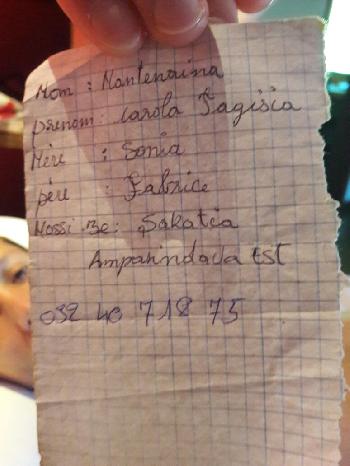 Nom : Nantenaina
prenom : Carola Fagisia
Mère : Sonia
père : Fabrice
Nossi Be : Sakatia
Ampasindava Est
032 40 718 75